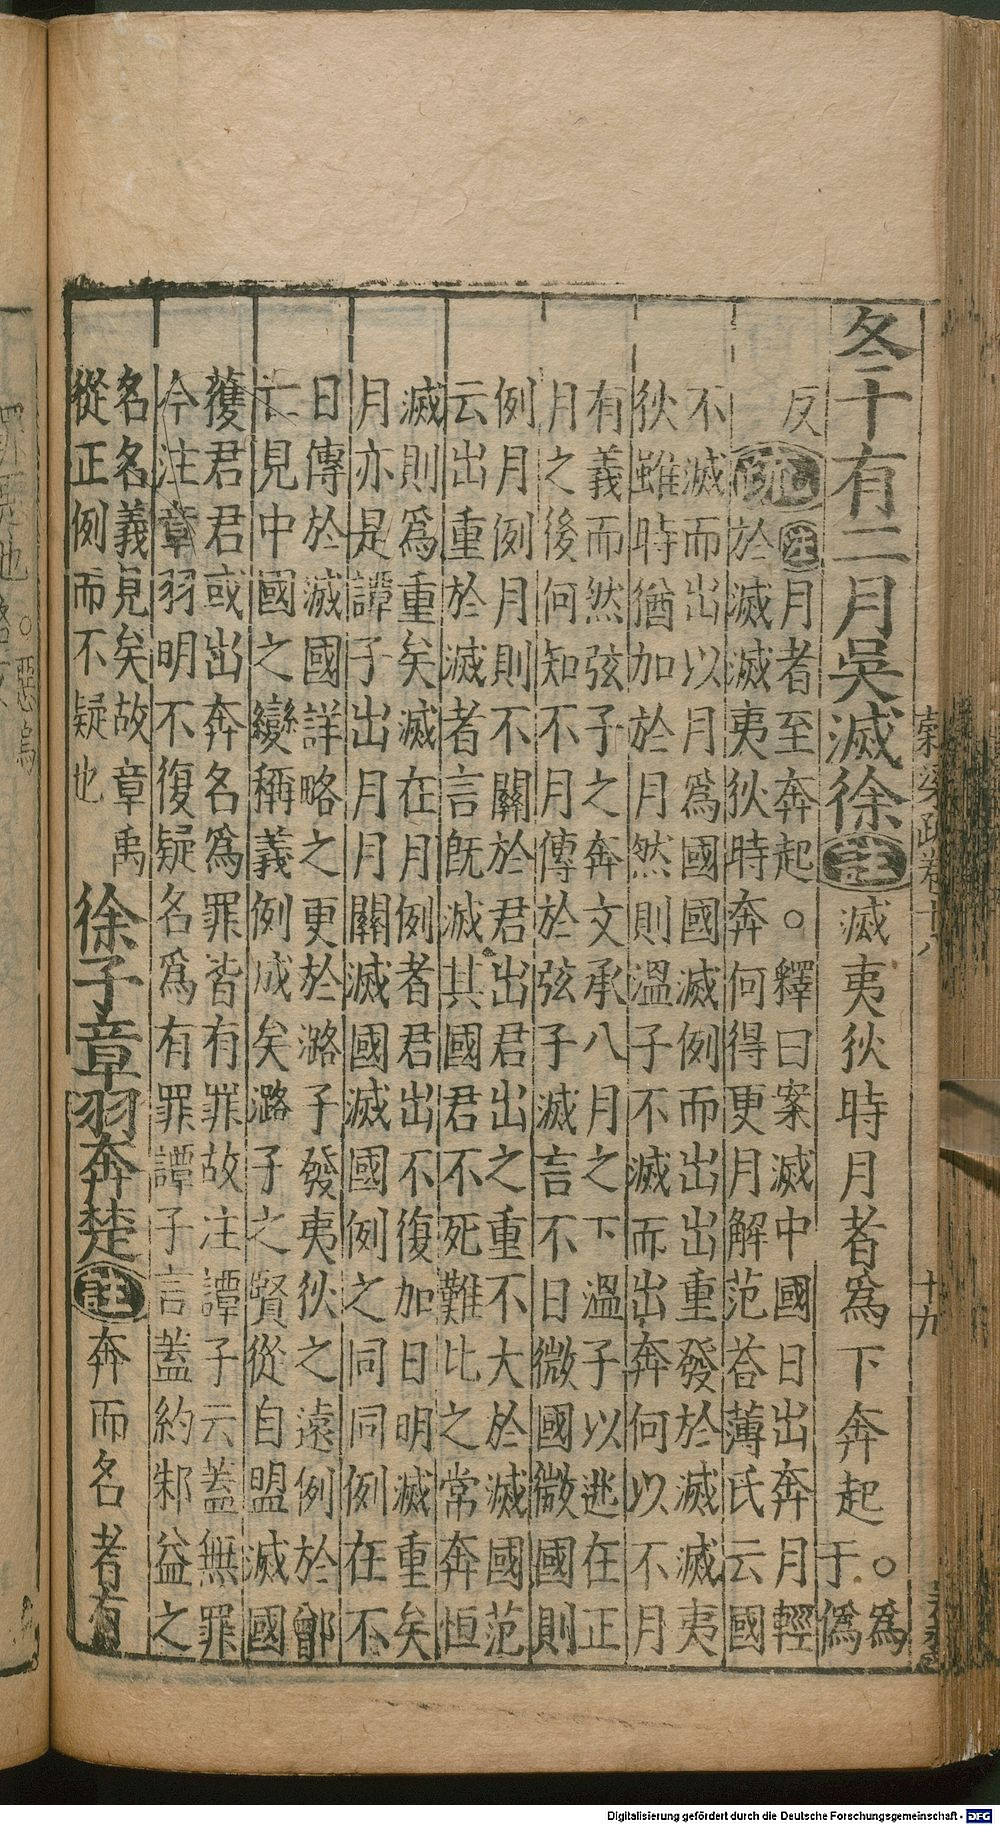 冬十有二月吳滅徐註滅夷狄時月者爲下奔起○爲
于僞
反
疏註月者至奔起○釋曰案滅中國日出奔月輕
於滅滅夷狄時奔何得更月解范荅薄氏云國
不滅而出以月爲國國滅例而出出重發於滅滅夷
狄雖時猶加於月然則溫子不滅而出奔何以不月
有義而然弦子之奔文承八月之下溫子以逃在正
月之後何知不月傳於弦子滅言不日微國微國則
例月例月則不關於君出君出之重不大於滅國范
云出重於滅者言旣滅其國君不死難比之常奔恒
滅則爲重矣滅在月例者君出不復加日明滅重矣
月亦是譚子出月月關滅國滅國例之同同例在不
日傳於滅國詳略之更於潞子發夷狄之遠例於鄫
亡見中國之變稱義例成矣潞子之賢從自盟滅國
獲君君或出奔名爲罪皆有罪故注譚子云蓋無罪
今注章羽明不復疑名爲有罪譚子言蓋約邾益之
名名義見矣故章禹
從正例而不疑也
徐子章羽奔楚註奔而名者有
穀梁疏卷十八
十九
Digitalisierung gefördert durch die Deutsche Forschungsgemeinschaft - DFG